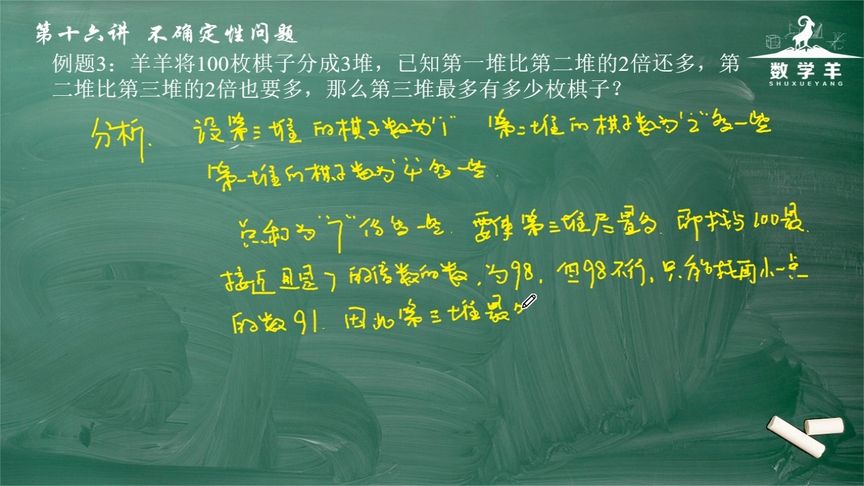 第十六讲 不确定性问题
例题3：羊羊将100枚棋子分成3堆，已知第一堆比第二堆的2倍还多，第
二堆比第三堆的2倍也要多，那么第三堆最多有多少枚棋子？
数学羊
SHUXUEYANG
分析. 设第三堆的棋子数为"1" 第二堆的棋子数为"2"多一些
第一堆的棋子数为"4"多一些.
总和为"7"份多一些. 要使第三堆尽量多. 即找与100最
接近且是7的倍数的数,为98,但98不行,只能找再小一点
的数91. 因此第三堆最多